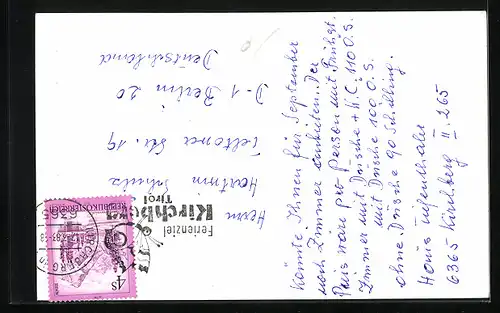 Könnte Ihnen für September
noch Zimmer anbieten. Der
Preis wäre pro Person mit Frühst.
Zimmer mit Dusche + W.C. 110 Ö.S.
mit Dusche 100 Ö.S.
ohne Dusche 90 Schilling.
Haus Tiefenthaler
6365 Kirchberg II. 265
Herrn
Hartmn Schulz
Teltower Str. 19
D-1 Berlin 20
Deutschland
Ferienziel
Kirchberg
Tirol
REPUBLIK ÖSTERREICH
4s
6365
KIRCHBERG